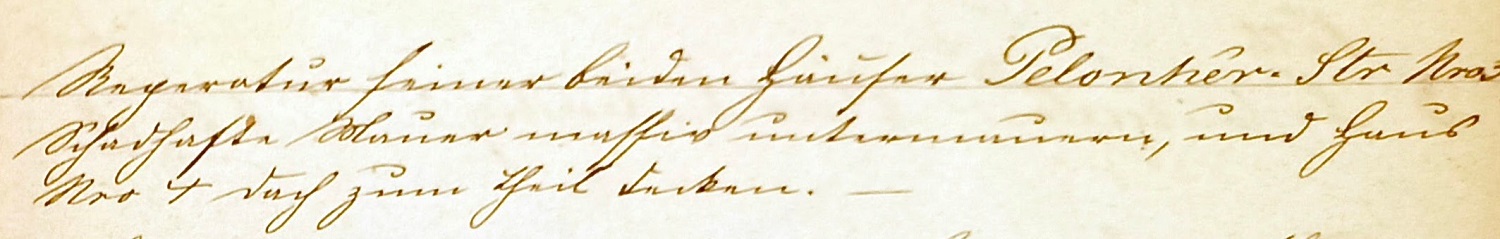 Reperatur seiner beiden Häuser Pelonker. Str Nro 3
Schadhafte Mauer massiv untermauern, und Haus
Nro 4 dach zum theil decken. —